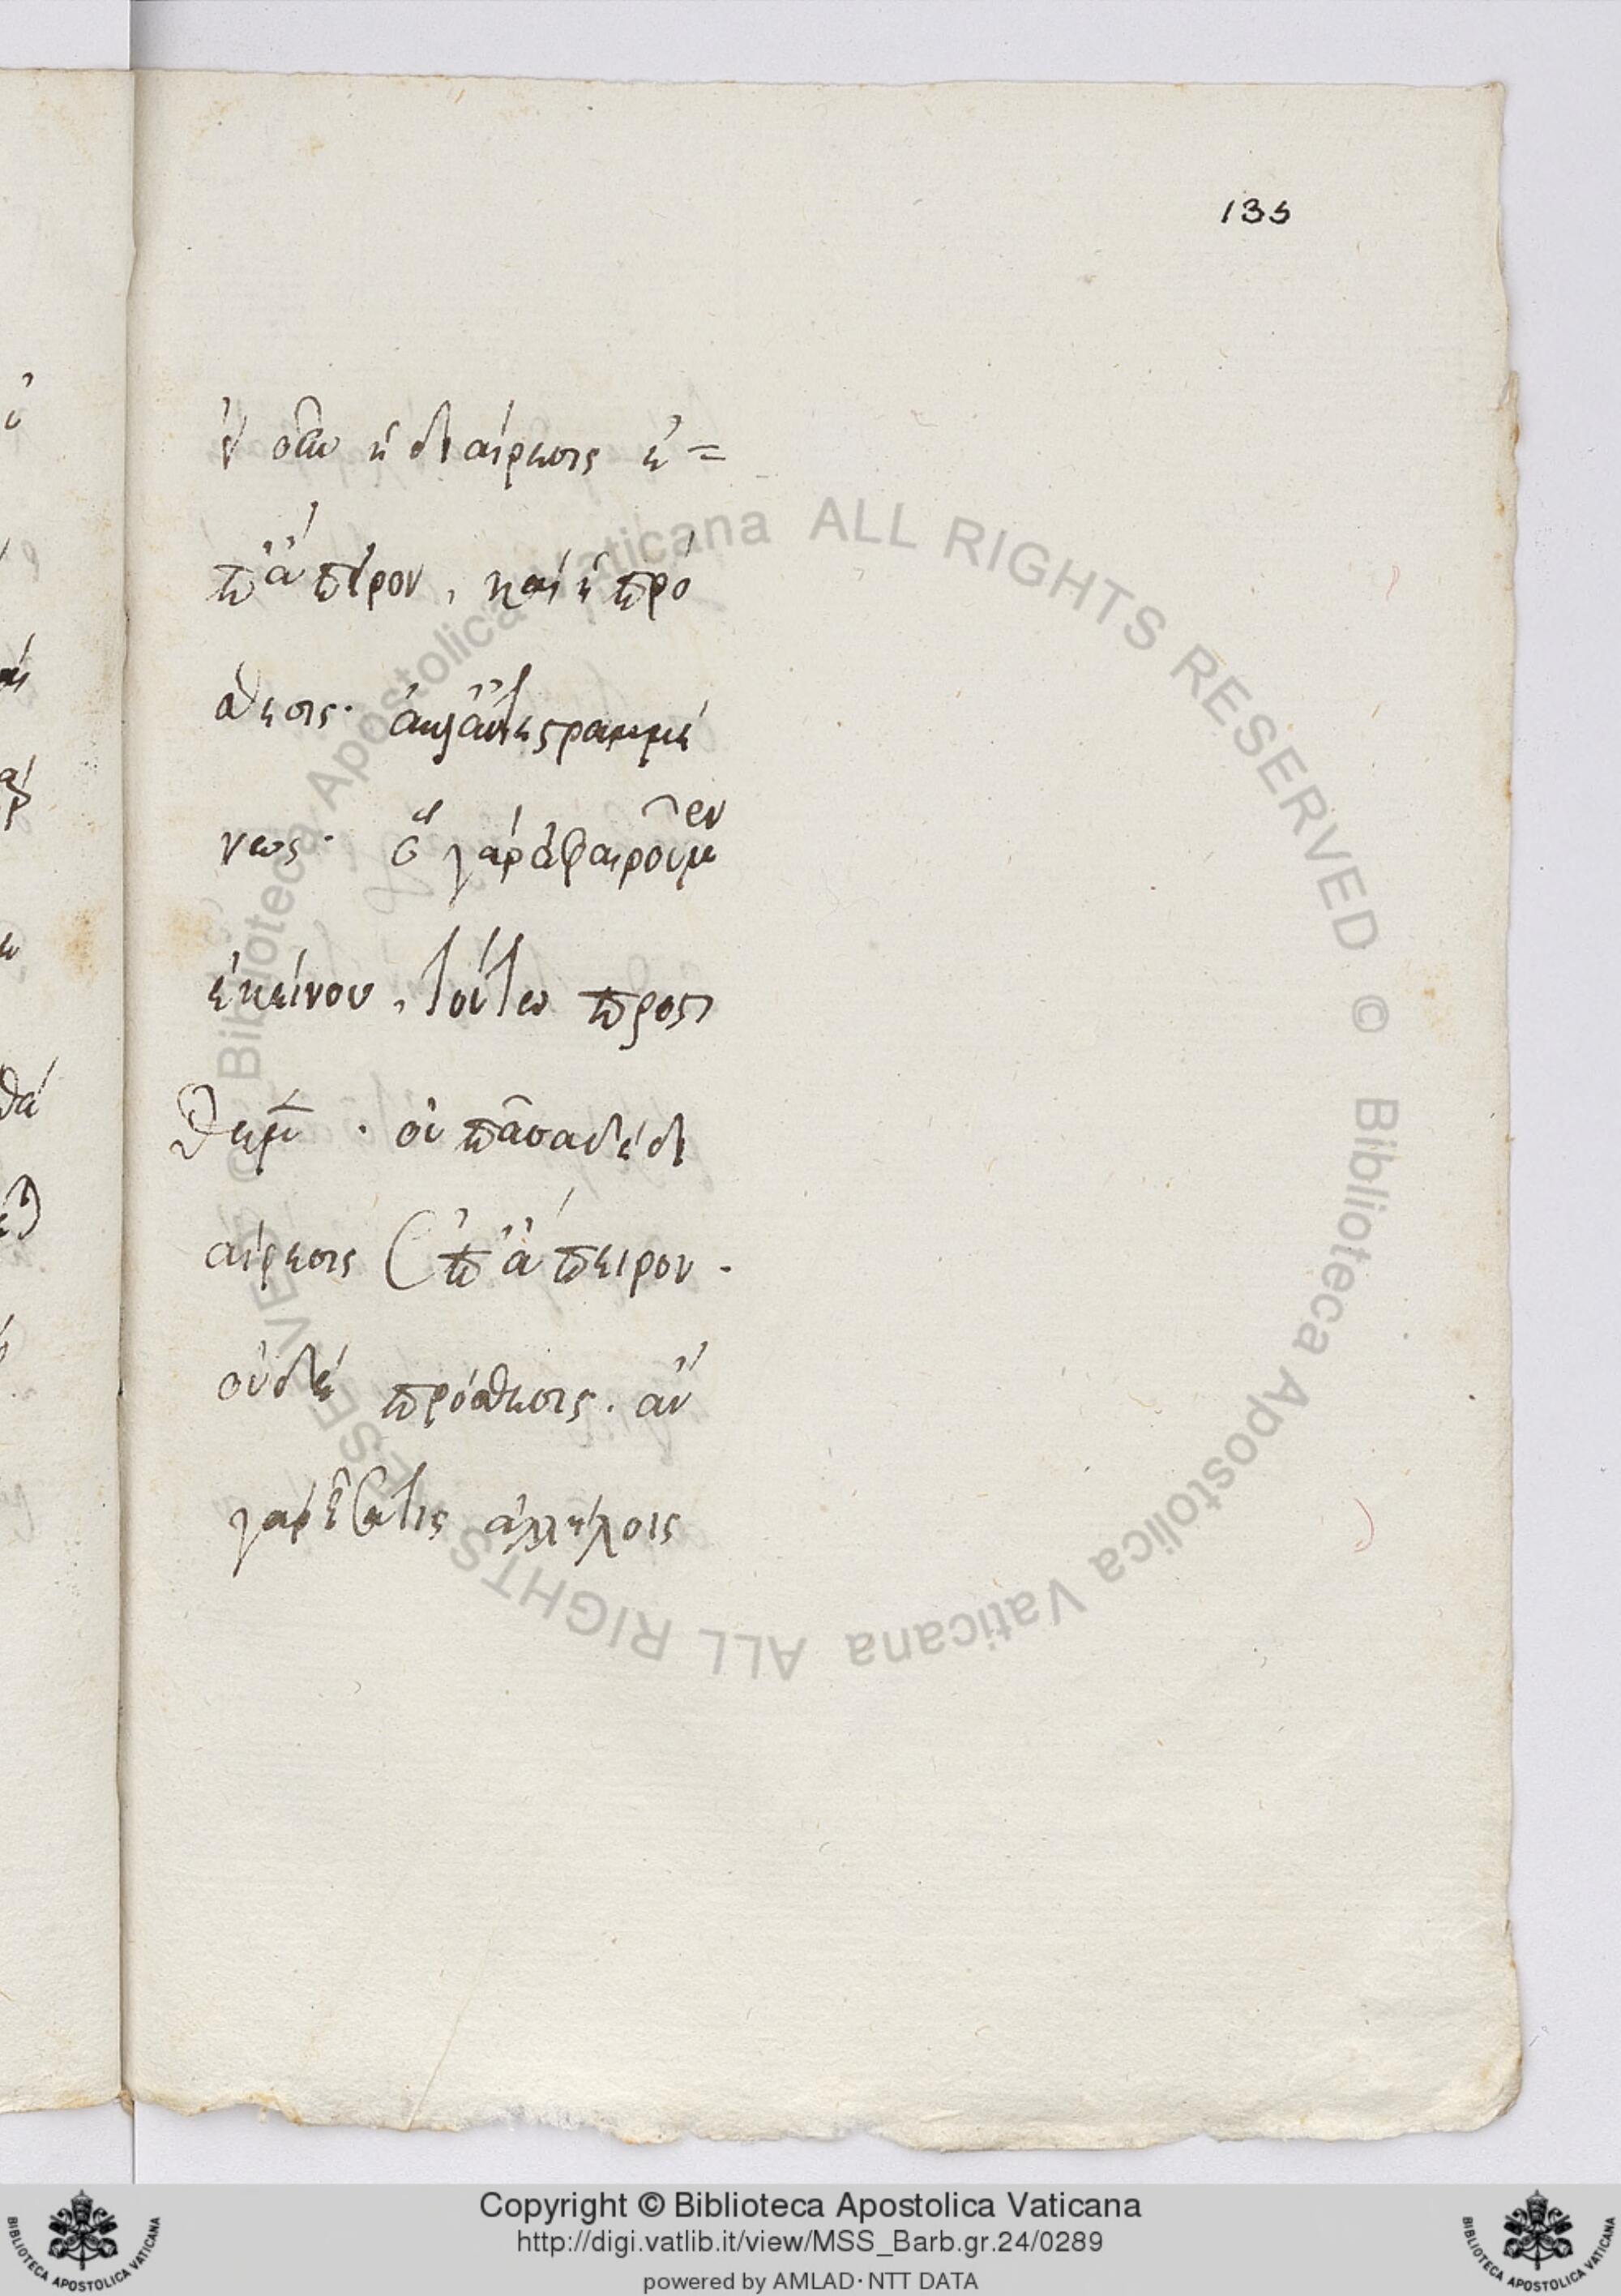 135
ἐν οἷς ἡ διαίρεσις ἐ=
π ἄπειρον, καὶ ἡ πρό
σθεσις· ἀντεστραμμέ
νως· ὃ γὰρ ἀφαιροῦμεν
ἐκείνου, τούτω προσ
θεμ · οὐ πᾶσα δὲ δι
αίρεσις ἐπ ἄπειρον.
οὐδὲ πρόσθεσις. ἀν
γὰρ ἀλλήλοις
Copyright © Biblioteca Apostolica Vaticana
http://digi.vatlib.it/view/MSS_Barb.gr.24/0289
powered by AMLAD·NTT DATA
Biblioteca Apostolica Vaticana ALL RIGHTS RESERVED © Biblioteca Apostolica Vaticana ALL RIGHTS RESERVED ©
BIBLIOTECA APOSTOLICA VATICANA
BIBLIOTECA APOSTOLICA VATICANA